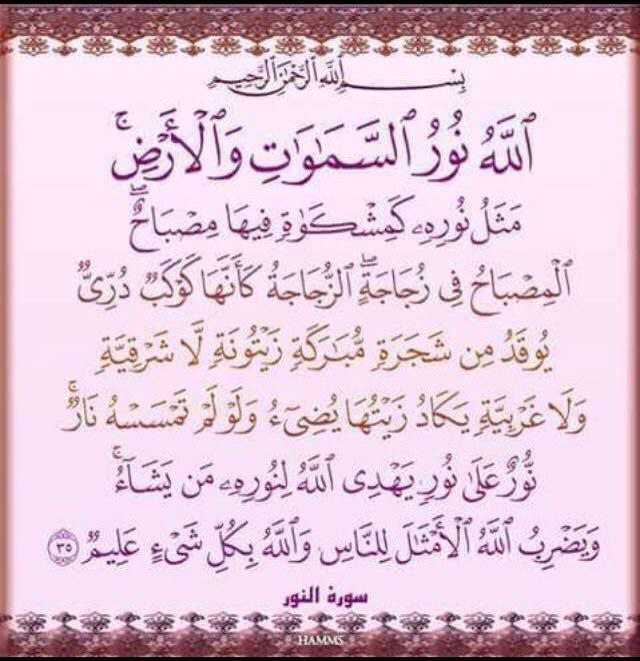 بِسْمِ اللَّهِ الرَّحْمَٰنِ الرَّحِيمِ
ٱللَّهُ نُورُ ٱلسَّمَٰوَٰتِ وَٱلْأَرْضِۚ
مَثَلُ نُورِهِۦ كَمِشْكَوٰةٍ فِيهَا مِصْبَاحٌۖ
ٱلْمِصْبَاحُ فِى زُجَاجَةٍۖ ٱلزُّجَاجَةُ كَأَنَّهَا كَوْكَبٌ دُرِّىٌّ
يُوقَدُ مِن شَجَرَةٍ مُّبَٰرَكَةٍ زَيْتُونَةٍ لَّا شَرْقِيَّةٍ
وَلَا غَرْبِيَّةٍ يَكَادُ زَيْتُهَا يُضِىٓءُ وَلَوْ لَمْ تَمْسَسْهُ نَارٌۚ
نُّورٌ عَلَىٰ نُورٍۗ يَهْدِى ٱللَّهُ لِنُورِهِۦ مَن يَشَآءُۚ
وَيَضْرِبُ ٱللَّهُ ٱلْأَمْثَٰلَ لِلنَّاسِۗ وَٱللَّهُ بِكُلِّ شَىْءٍ عَلِيمٌ ٣٥
سورة النور
HAMMS